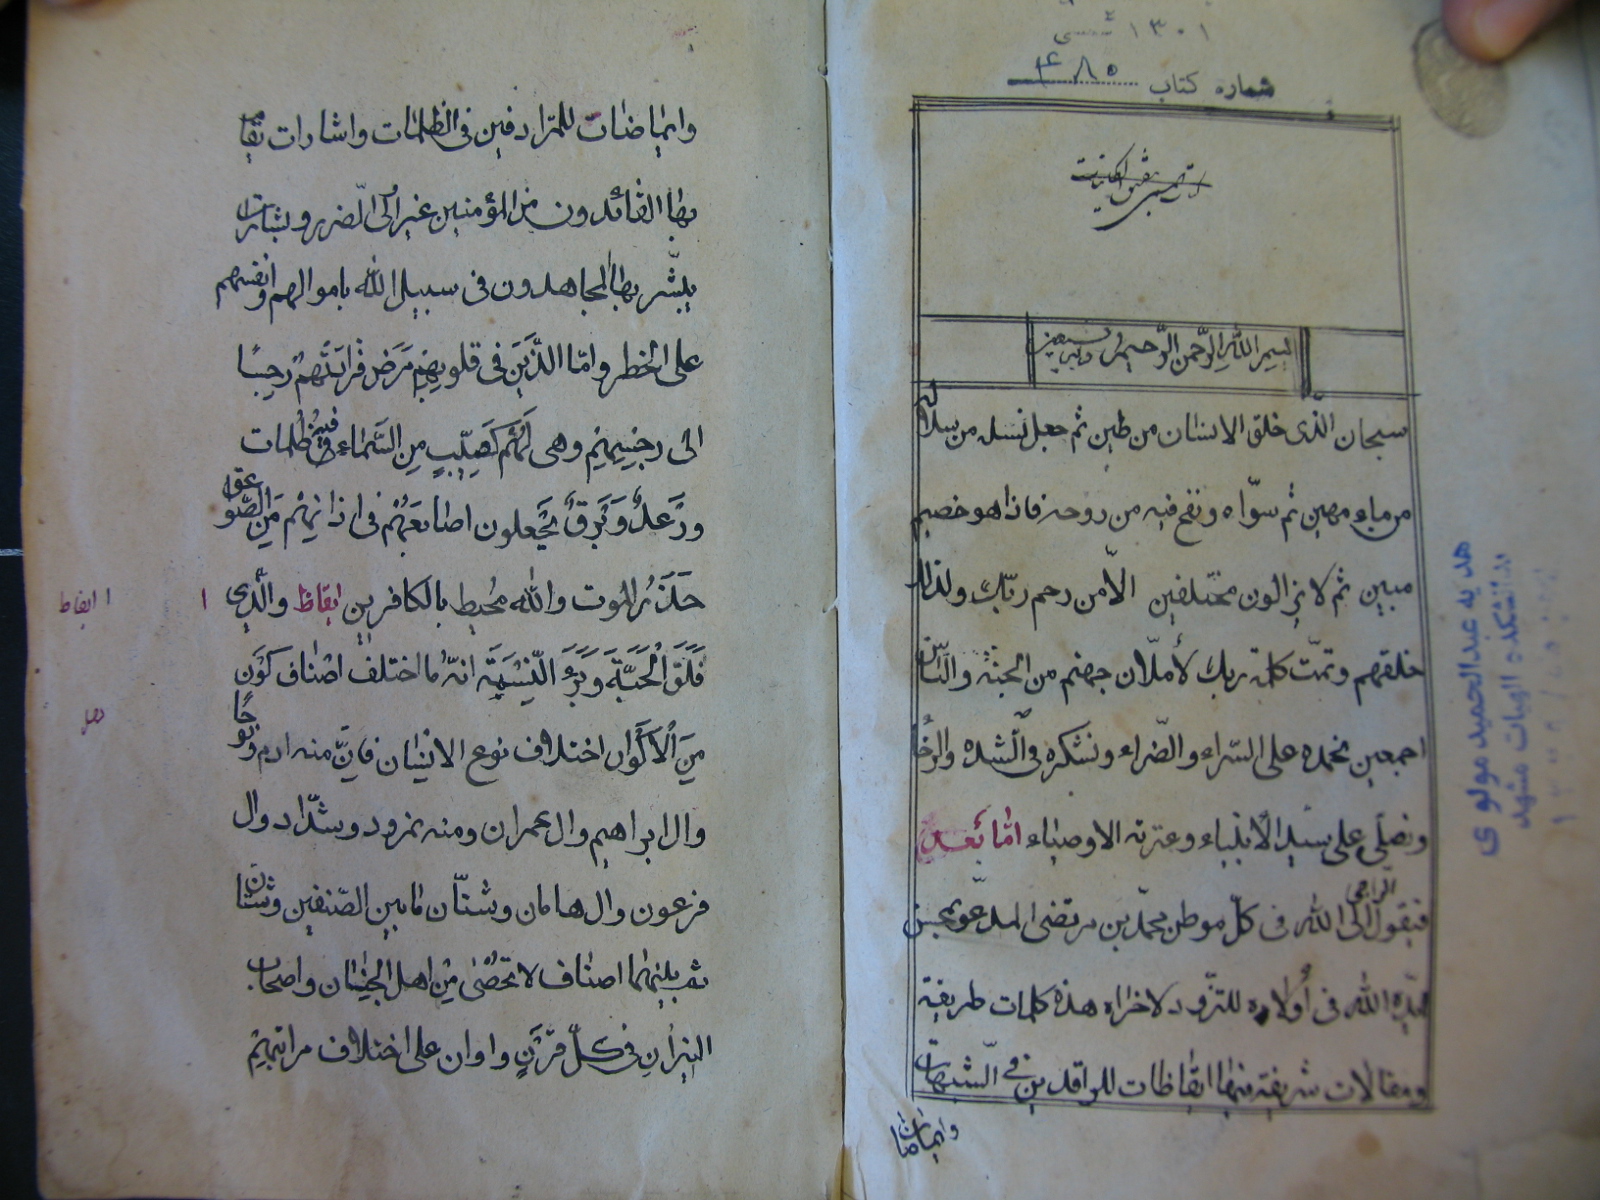 ١٣٠١ شمسی
شماره کتاب ٤٨٥
بسم الله الرحمن الرحيم وبه نستعين
سبحان الّذی خلق الانسان من طين ثم جعل نسله من سلالة
من ماء مهين ثم سوّاه ونفخ فيه من روحه فاذا هو خصيم
مبين ثم لا يزالون مختلفين الّا من رحم ربّك ولذلك
خلقهم وتمّت كلمة ربك لأملأنّ جهنم من الجنّة والنّاس
اجمعين نحمده علی السّراء والضّراء ونشكره فی الشّدة والرخاء
ونصلّی علی سيد الأنبياء وعترته الاوصياء امّا بعد
فيقول الراجی الی الله فی كلّ موطن محمّد بن مرتضی المدعوّ بمحسن
ايّده الله فی أولاه للتزود لاخراه هذه كلمات طريفة
ومقالات شريفة منها ايقاظات للراقدين فی الشّبهات
وايماضات
هديه عبدالحميد مولوی
بدانشکده الهیات مشهد
وايماضات للمترادفين فی الظلمات واشارات يقاد
بها القائدون من المؤمنين غير اولی الضرر وبشارات
يبشّر بها المجاهدون فی سبيل الله باموالهم وانفسهم
علی الخطر وامّا الذّين فی قلوبهم مرض فزادتهم رجسًا
الی رجسهم وهی لهم كصيّب من السّماء فيه ظلمات
ورعد وبرق يجعلون اصابعهم فی اذانهم من الصّواعق
حذر الموت والله محيط بالكافرين ايقاظ والّذی
فلق الحبّة وبرء النّسمة انّه ما اختلف اصناف كون
من الاكوان اختلاف نوع الانسان فانّ منه ادم ونوحًا
وال ابراهيم وال عمران ومنه نمرود وشدّاد وال
فرعون وال هامان وشتّان ما بين الصّنفين وشتّان
ثم بينهما اصناف لا تحصی من اهل الجنان واصحاب
النيران فی كلّ قرن واوان علی اختلاف مراتبهم
ايقاظ